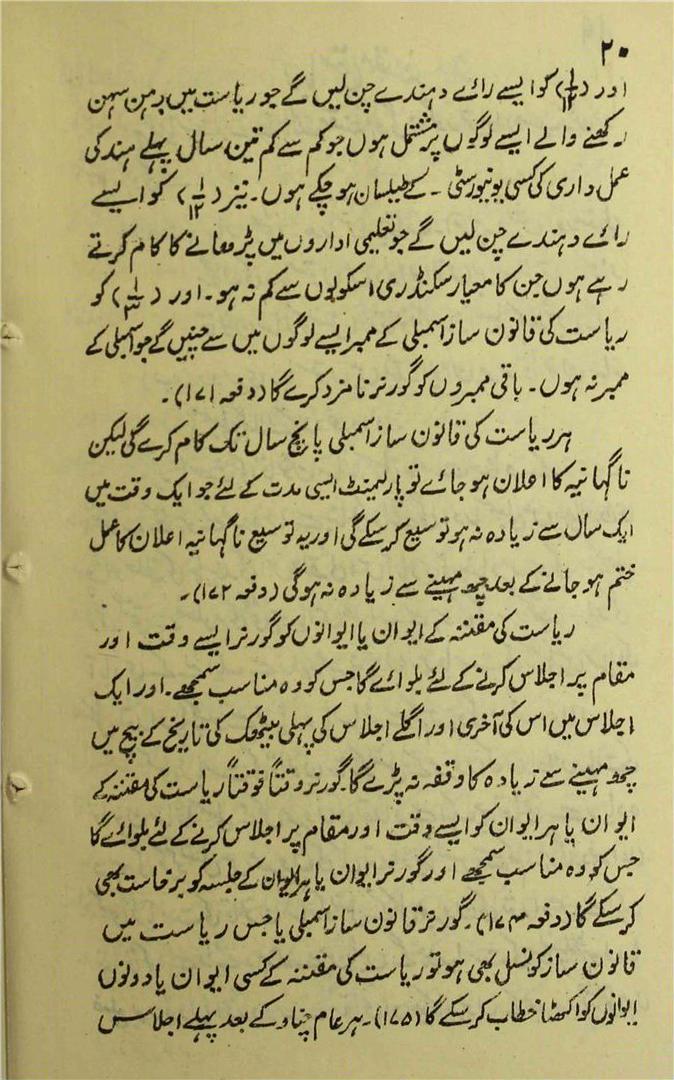 ۲۰
اور (۱/۱۲) کو ایسے رائے دہندے چن لیں گے جو ریاست میں رہن سہن
رکھنے والے ایسے لوگوں پر مشتمل ہوں جو کم سے کم تین سال پہلے ہند کی
عمل داری کی کسی یونیورسٹی ۔ کے طیلسان ہو چکے ہوں۔ نیز (۱/۱۲) کو ایسے
رائے دہندے چن لیں گے جو تعلیمی اداروں میں پڑھانے کا کام کرتے
رہے ہوں جن کا معیار سکنڈری اسکولوں سے کم نہ ہو۔ اور (۱/۳) کو
ریاست کی قانون ساز اسمبلی کے ممبر ایسے لوگوں میں سے چنیں گے جو اسمبلی کے
ممبر نہ ہوں۔ باقی ممبروں کو گورنر نامزد کرے گا (دفعہ ۱۷۱)۔
ہر ریاست کی قانون ساز اسمبلی پانچ سال تک کام کرے گی لیکن
ناگہانیہ کا اعلان ہو جائے تو پارلیمنٹ ایسی مدت کے لئے جو ایک وقت میں
ایک سال سے زیادہ نہ ہو توسیع کر سکے گی اور یہ توسیع ناگہانیہ اعلان کا عمل
ختم ہو جانے کے بعد چھ مہینے سے زیادہ نہ ہوگی (دفعہ ۱۷۲)۔
ریاست کی مقننہ کے ایوان یا ایوانوں کو گورنر ایسے وقت اور
مقام پر اجلاس کرنے کے لئے بلوائے گا جس کو وہ مناسب سمجھے۔ اور ایک
اجلاس میں اس کی آخری اور اگلے اجلاس کی پہلی بیٹھک کی تاریخ کے بیچ میں
چھ مہینے سے زیادہ کا وقفہ نہ پڑے گا۔ گورنر وقتاً فوقتاً ریاست کی مقننہ کے
ایوان یا ہر ایوان کو ایسے وقت اور مقام پر اجلاس کرنے کے لئے بلوائے گا
جس کو وہ مناسب سمجھے اور گورنر ایوان یا ہر ایوان کے جلسہ کو برخاست بھی
کر سکے گا (دفعہ ۱۷۴)۔ گورنر قانون ساز اسمبلی یا جس ریاست میں
قانون ساز کونسل بھی ہو تو ریاست کی مقننہ کے کسی ایوان یا دونوں
ایوانوں کو اکھٹا خطاب کر سکے گا (۱۷۵)۔ ہر عام چناو کے بعد پہلے اجلاس